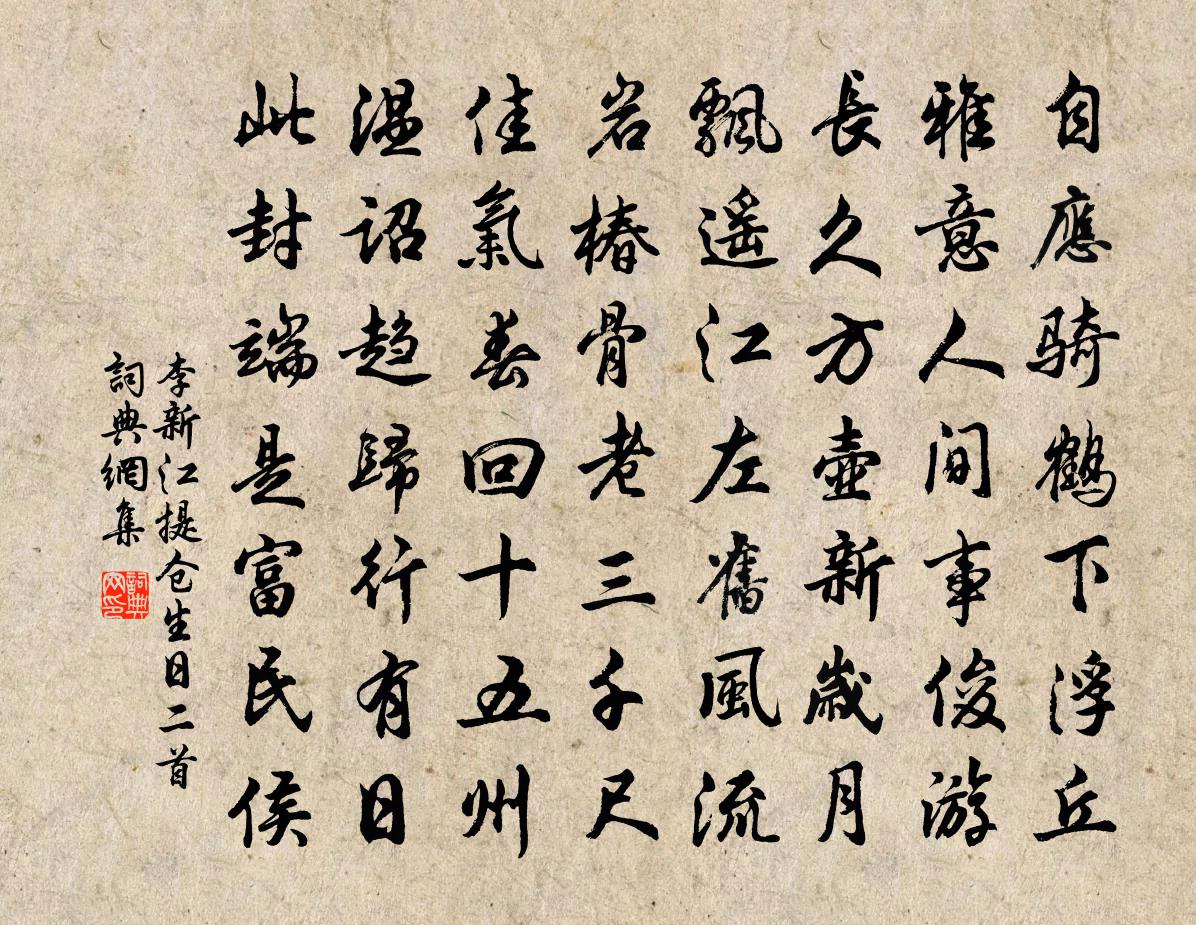 自應騎鶴下浮丘
雅意人间事俊游
長久方壺新歲月
飄遥江左舊風流
岩椿骨老三千尺
佳氣春回十五州
温詔趋歸行有日
此封端是富民侯
李新江提仓生日二首
詞典網集
詞典网印